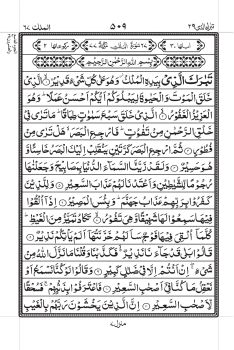 تبٰرك الذی ٢٩
٥٠٩
الملك ٦٧
بِسْمِ اللّٰهِ الرَّحْمٰنِ الرَّحِيْمِ
تَبٰرَكَ الَّذِيْ بِيَدِهِ الْمُلْكُ وَهُوَ عَلٰى كُلِّ شَيْءٍ قَدِيْرُۨ ۙ الَّذِيْ
خَلَقَ الْمَوْتَ وَالْحَيٰوةَ لِيَبْلُوَكُمْ اَيُّكُمْ اَحْسَنُ عَمَلًا ؕ وَهُوَ
الْعَزِيْزُ الْغَفُوْرُ ۙ الَّذِيْ خَلَقَ سَبْعَ سَمٰوٰتٍ طِبَاقًا ؕ مَا تَرٰى فِيْ
خَلْقِ الرَّحْمٰنِ مِنْ تَفٰوُتٍ ؕ فَارْجِعِ الْبَصَرَ ۙ هَلْ تَرٰى مِنْ
فُطُوْرٍ ۝ ثُمَّ ارْجِعِ الْبَصَرَ كَرَّتَيْنِ يَنْقَلِبْ اِلَيْكَ الْبَصَرُ خَاسِئًا
وَّهُوَ حَسِيْرٌ ۝ وَلَقَدْ زَيَّنَّا السَّمَآءَ الدُّنْيَا بِمَصَابِيْحَ وَجَعَلْنٰهَا
رُجُوْمًا لِّلشَّيٰطِيْنِ وَاَعْتَدْنَا لَهُمْ عَذَابَ السَّعِيْرِ ۝ وَلِلَّذِيْنَ
كَفَرُوْا بِرَبِّهِمْ عَذَابُ جَهَنَّمَ ؕ وَبِئْسَ الْمَصِيْرُ ۝ اِذَآ اُلْقُوْا
فِيْهَا سَمِعُوْا لَهَا شَهِيْقًا وَّهِيَ تَفُوْرُ ۝ تَكَادُ تَمَيَّزُ مِنَ الْغَيْظِ ؕ
كُلَّمَآ اُلْقِيَ فِيْهَا فَوْجٌ سَاَلَهُمْ خَزَنَتُهَآ اَلَمْ يَاْتِكُمْ نَذِيْرٌ ۝
قَالُوْا بَلٰى قَدْ جَآءَنَا نَذِيْرٌ ۙ فَكَذَّبْنَا وَقُلْنَا مَا نَزَّلَ اللّٰهُ مِنْ
شَيْءٍ ۚ اِنْ اَنْتُمْ اِلَّا فِيْ ضَلٰلٍ كَبِيْرٍ ۝ وَقَالُوْا لَوْ كُنَّا نَسْمَعُ اَوْ
نَعْقِلُ مَا كُنَّا فِيْٓ اَصْحٰبِ السَّعِيْرِ ۝ فَاعْتَرَفُوْا بِذَنْۢبِهِمْ ۚ فَسُحْقًا
لِّاَصْحٰبِ السَّعِيْرِ ۝ اِنَّ الَّذِيْنَ يَخْشَوْنَ رَبَّهُمْ بِالْغَيْبِ
منزل ٧